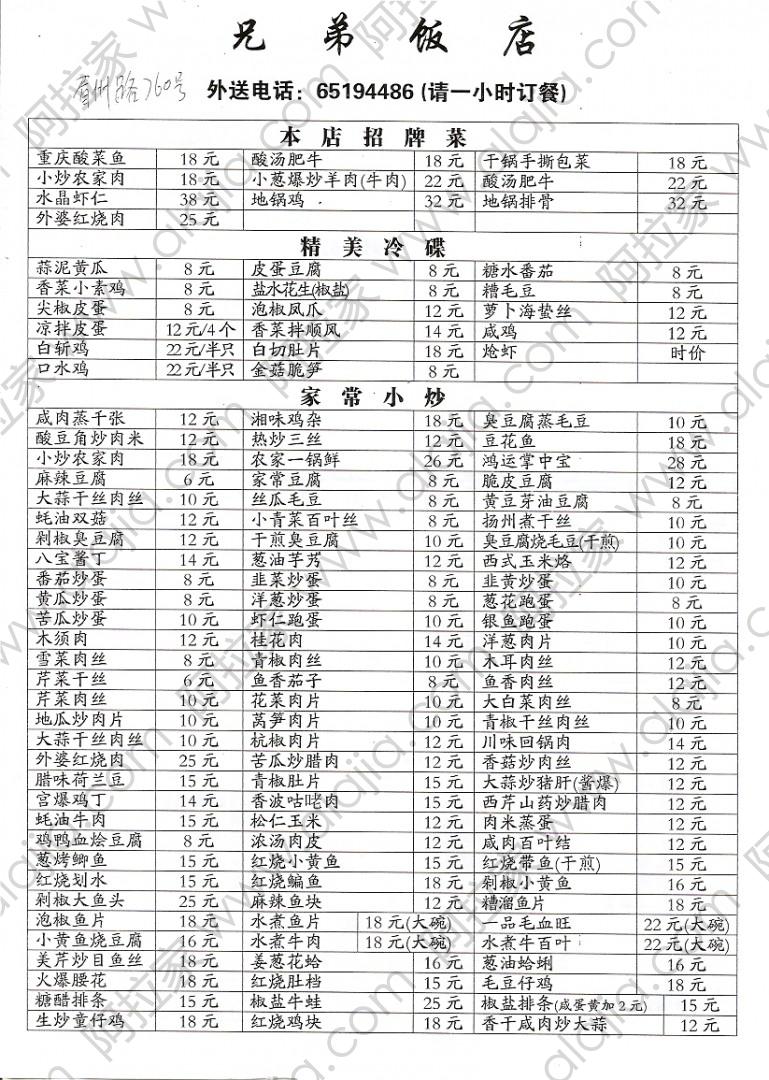 兄弟饭店
宜州路760号 外送电话：65194486 (请一小时订餐)
本店招牌菜
重庆酸菜鱼 18元 酸汤肥牛 18元 干锅手撕包菜 18元
小炒农家肉 18元 小葱爆炒羊肉(牛肉) 22元 酸汤肥牛 22元
水晶虾仁 38元 地锅鸡 32元 地锅排骨 32元
外婆红烧肉 25元
精美冷碟
蒜泥黄瓜 8元 皮蛋豆腐 8元 糖水番茄 8元
香菜小素鸡 8元 盐水花生(椒盐) 8元 糟毛豆 8元
尖椒皮蛋 8元 泡椒凤爪 12元 萝卜海蛰丝 12元
凉拌皮蛋 12元/4个 香菜拌顺风 14元 咸鸡 12元
白斩鸡 22元/半只 白切肚片 18元 炝虾 时价
口水鸡 22元/半只 金菇脆笋 8元
家常小炒
咸肉蒸千张 12元 湘味鸡杂 18元 臭豆腐蒸毛豆 10元
酸豆角炒肉米 12元 热炒三丝 12元 豆花鱼 18元
小炒农家肉 18元 农家一锅鲜 26元 鸿运掌中宝 28元
麻辣豆腐 6元 家常豆腐 8元 脆皮豆腐 12元
大蒜干丝肉丝 10元 丝瓜毛豆 8元 黄豆芽油豆腐 8元
蚝油双菇 12元 小青菜百叶丝 8元 扬州煮干丝 10元
剁椒臭豆腐 12元 干煎臭豆腐 10元 臭豆腐烧毛豆(干煎) 10元
八宝酱丁 14元 葱油芋艿 12元 西式玉米烙 12元
番茄炒蛋 8元 韭菜炒蛋 8元 韭黄炒蛋 10元
黄瓜炒蛋 8元 洋葱炒蛋 8元 葱花跑蛋 8元
苦瓜炒蛋 10元 虾仁跑蛋 10元 银鱼跑蛋 10元
木须肉 12元 桂花肉 14元 洋葱肉片 10元
雪菜肉丝 8元 青椒肉丝 10元 木耳肉丝 12元
芹菜干丝 6元 鱼香茄子 8元 鱼香肉丝 12元
芹菜肉丝 10元 花菜肉片 10元 大白菜肉丝 8元
地瓜炒肉片 10元 莴笋肉片 10元 青椒干丝肉丝 10元
大蒜干丝肉丝 10元 杭椒肉片 12元 川味回锅肉 14元
外婆红烧肉 25元 苦瓜炒腊肉 12元 香菇炒肉丝 12元
腊味荷兰豆 15元 青椒肚片 15元 大蒜炒猪肝(酱爆) 12元
宫爆鸡丁 14元 香波咕咾肉 15元 西芹山药炒腊肉 12元
蚝油牛肉 15元 松仁玉米 12元 肉米蒸蛋 12元
鸡鸭血烩豆腐 8元 浓汤肉皮 12元 咸肉百叶结 12元
葱烤鲫鱼 15元 红烧小黄鱼 15元 红烧带鱼(干煎) 15元
红烧划水 15元 红烧鳊鱼 18元 剁椒小黄鱼 16元
剁椒大鱼头 25元 麻辣鱼块 12元 糟溜鱼片 18元
泡椒鱼片 18元 水煮鱼片 18元(大碗) 一品毛血旺 22元(大碗)
小黄鱼烧豆腐 16元 水煮牛肉 18元(大碗) 水煮牛百叶 22元(大碗)
美芹炒目鱼丝 18元 姜葱花蛤 16元 葱油蛤蜊 16元
火爆腰花 18元 红烧肚档 15元 毛豆仔鸡 18元
糖醋排条 15元 椒盐牛蛙 25元 椒盐排条(咸蛋黄加2元) 15元
生炒童仔鸡 18元 红烧鸡块 18元 香干咸肉炒大蒜 12元